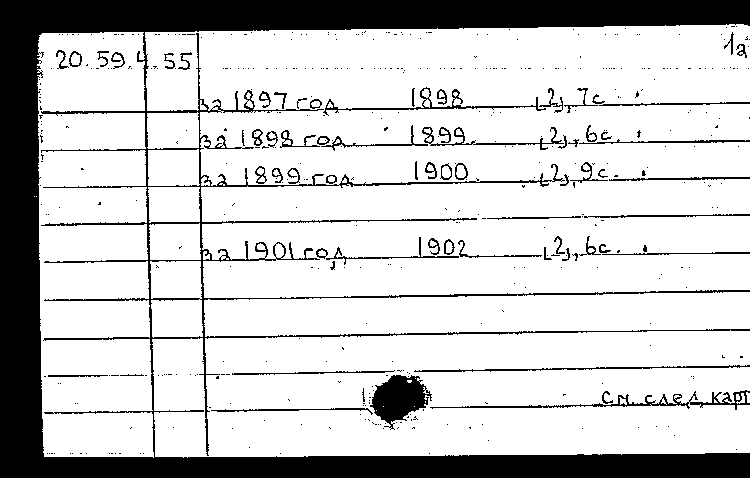 1а
20.59.4.55
за 1897 год 1898 [2], 7с.
за 1898 год 1899. [2], 6с.
за 1899 год 1900. [2], 9с.
за 1901 год 1902. [2], 6с.
См. след. карт